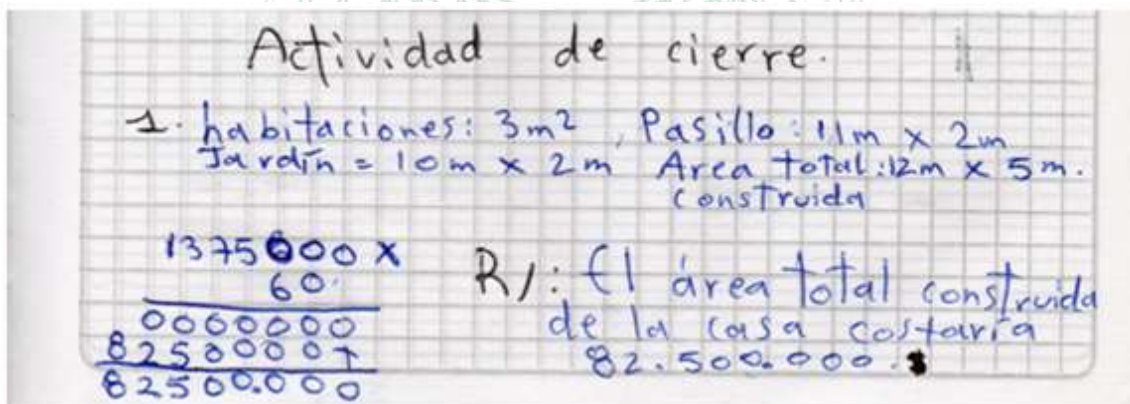 Actividad de cierre.
1. habitaciones: 3m², Pasillo: 11m x 2m
Jardín = 10m x 2m Area total: 12m x 5m.
construida
1375000 x
60.
0000000
8250000+
82500.000
R/: El área total construida
de la casa costaría
82.500.000.$